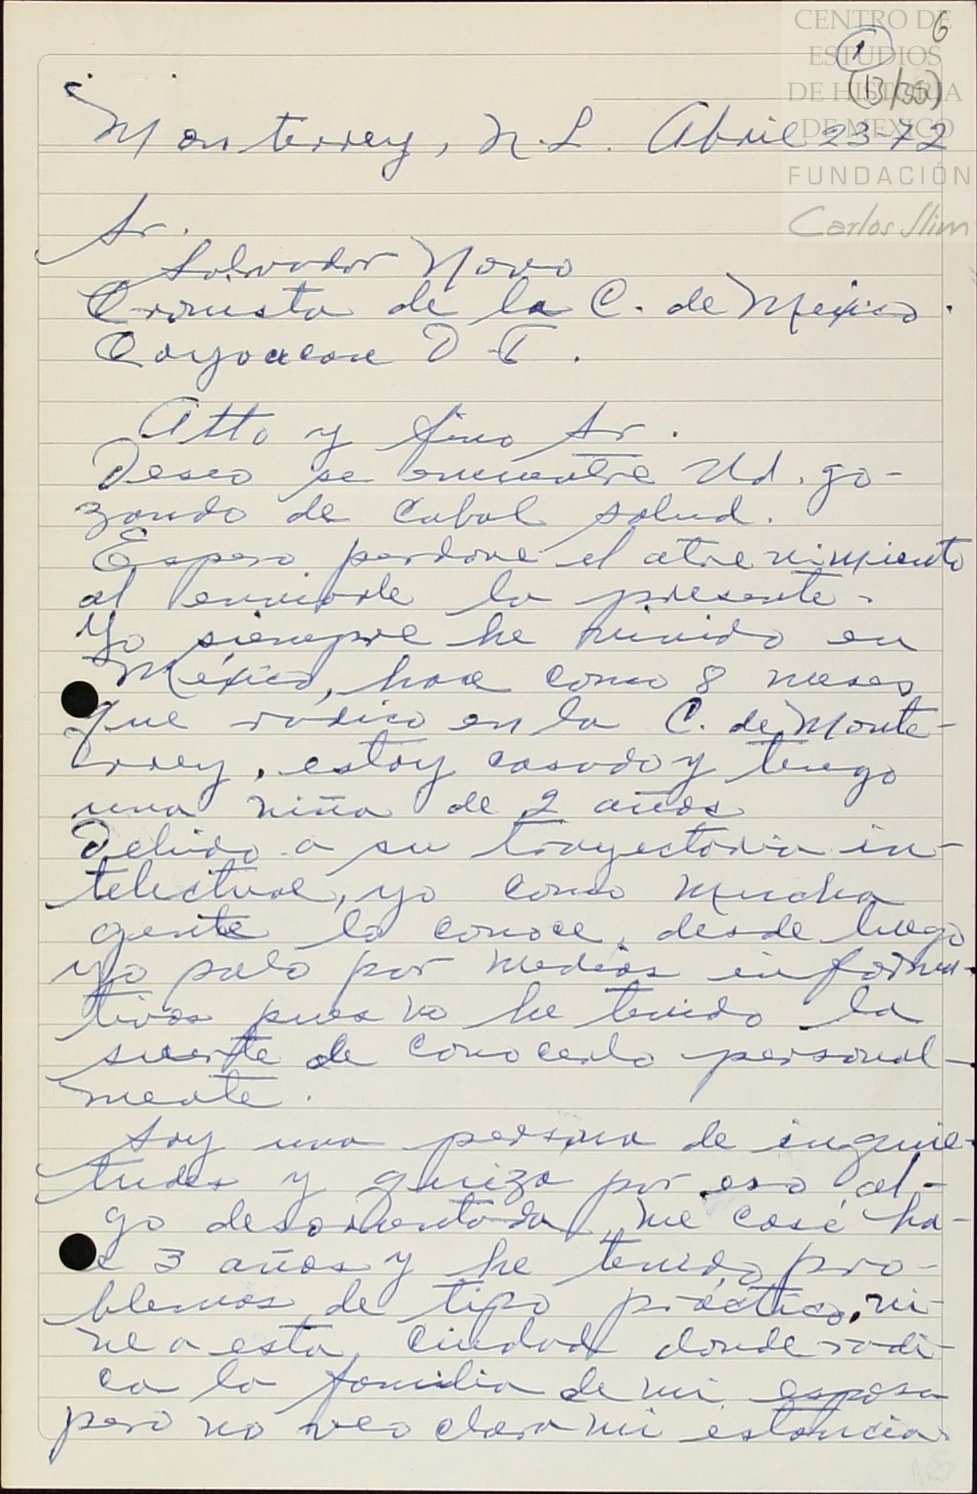 6
CENTRO DE
ESTUDIOS
DE HISTORIA
DE MÉXICO
FUNDACIÓN
Carlos Slim
1
(13/50)
Monterrey, N.L. Abril 23-72
Sr.
Salvador Novo
Cronista de la C. de México.
Coyoacan D F.
Atto y fino Sr.
Deseo se encuentre Ud. go-
zando de cabal salud.
Espero perdone el atrevimiento
al enviarle la presente.
Yo siempre he vivido en
México, hace como 8 meses
que radico en la C. de Monte-
rrey, estoy casado y tengo
una niña de 2 años
Debido a su trayectoria in-
telectual, yo como mucha
gente lo conoce, desde luego
yo solo por medios informa-
tivos pues no he tenido la
suerte de conocerlo personal-
mente.
Soy una persona de inquie-
tudes y quiza por eso al-
go desorientada, me casé ha-
ce 3 años y he tenido pro-
blemas de tipo práctico, vi-
ne a esta ciudad donde radi-
ca la familia de mi esposa
pero no veo clara mi estancia